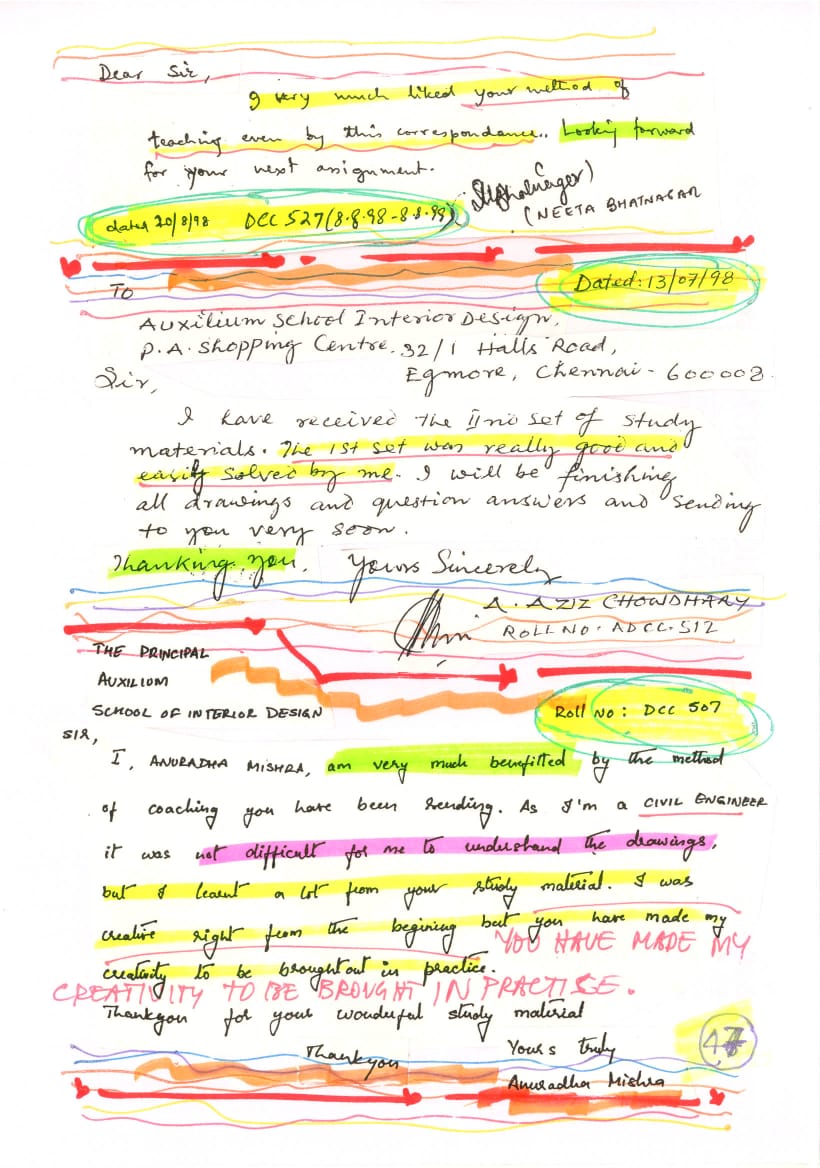 Dear Sir,
I very much liked your method of
teaching even by this correspondance.. Looking forward
for your next assignment.
(NEETA BHATNAGAR
dated 20/8/98 DCC 527(8.8.98-8.8.99)
Dated:13/07/98
To
Auxilium School Interior Design,
P.A. Shopping Centre. 32/1 Halls Road,
Egmore, Chennai - 600008.
Sir,
I have received the IInd set of study
materials. The 1st set was really good and
easily solved by me. I will be finishing
all drawings and question answers and sending
to you very soon.
Thanking you. Yours Sincerely
A. AZIZ CHOWDHARY
ROLL NO. ADCC.512
THE PRINCIPAL
AUXILIUM
SCHOOL OF INTERIOR DESIGN
Roll No: DCC 507
SIR,
I, ANURADHA MISHRA, am very much benefitted by the method
of coaching you have been sending. As I'm a CIVIL ENGINEER
it was not difficult for me to understand the drawings,
but I learnt a lot from your study material. I was
creative right from the begining but you have made my
YOU HAVE MADE MY
creativity to be brought out in practice.
CREATIVITY TO BE BROUGHT IN PRACTISE.
Thankyou for your wonderful study material
47
Thankyou Yours truly
Anuradha Mishra